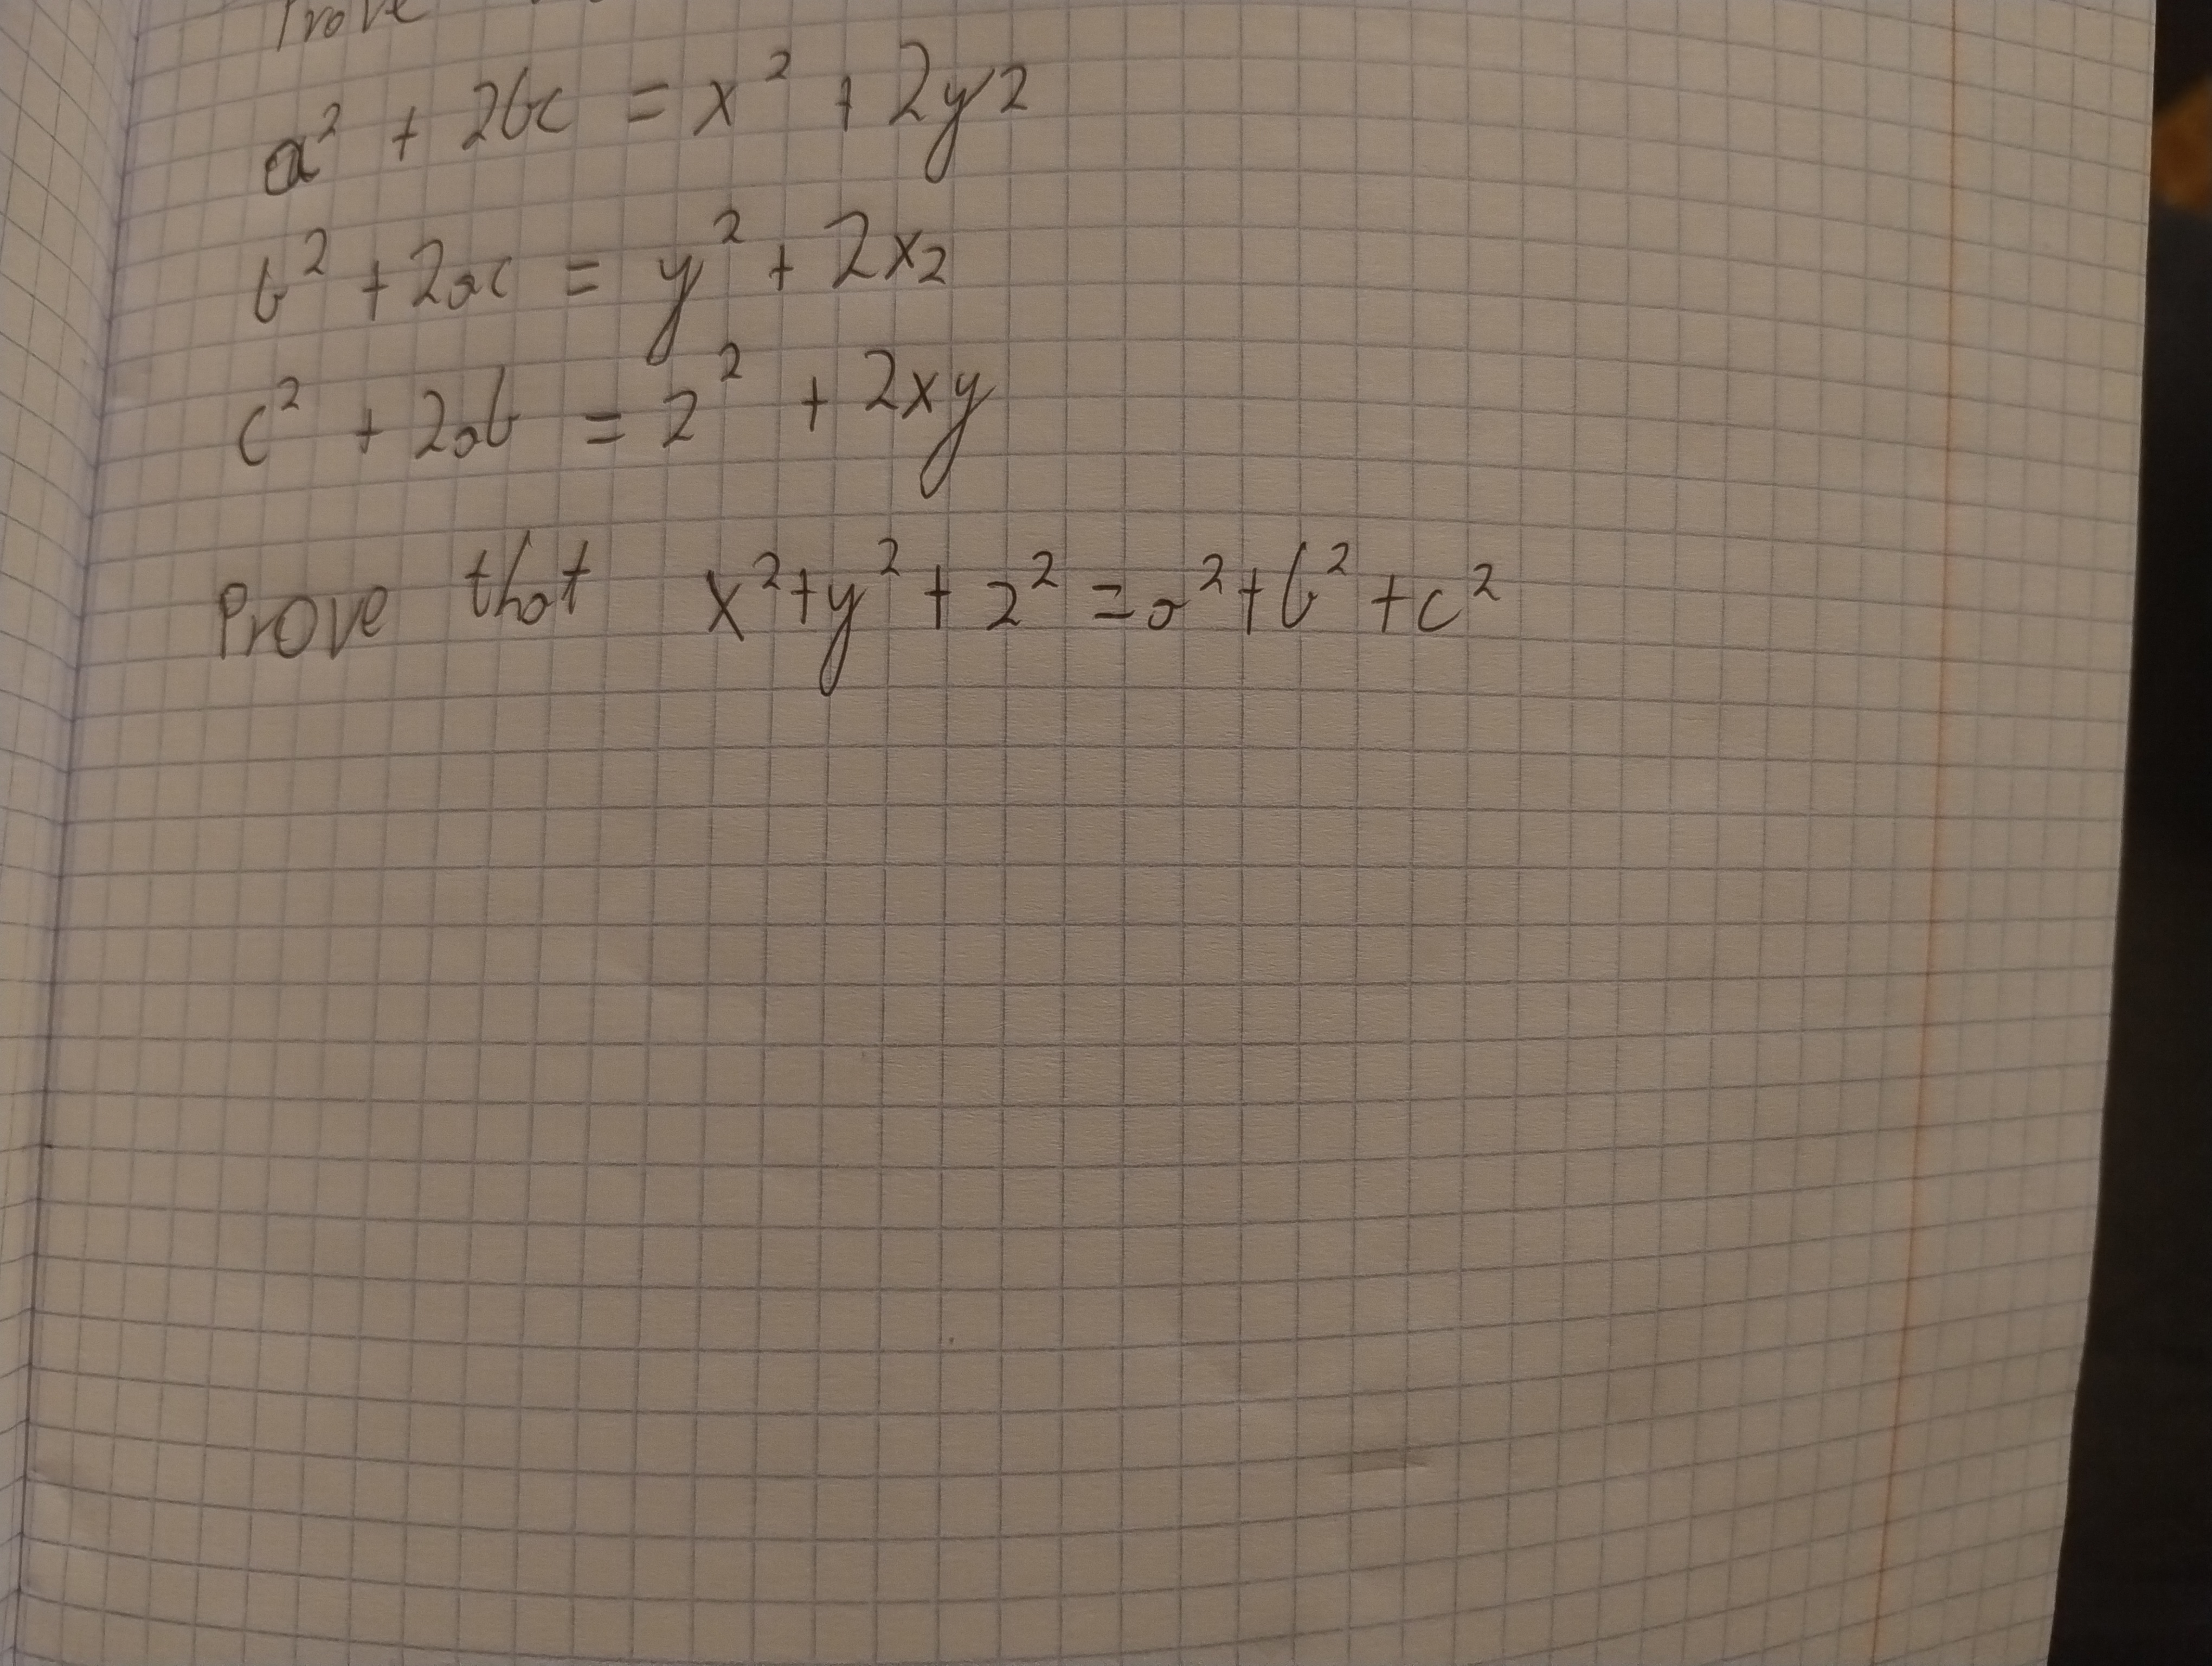 Prove
a² + 2bc = x² + 2yz
b² + 2ac = y² + 2xz
c² + 2ab = z² + 2xy
Prove that x² + y² + z² = a² + b² + c²